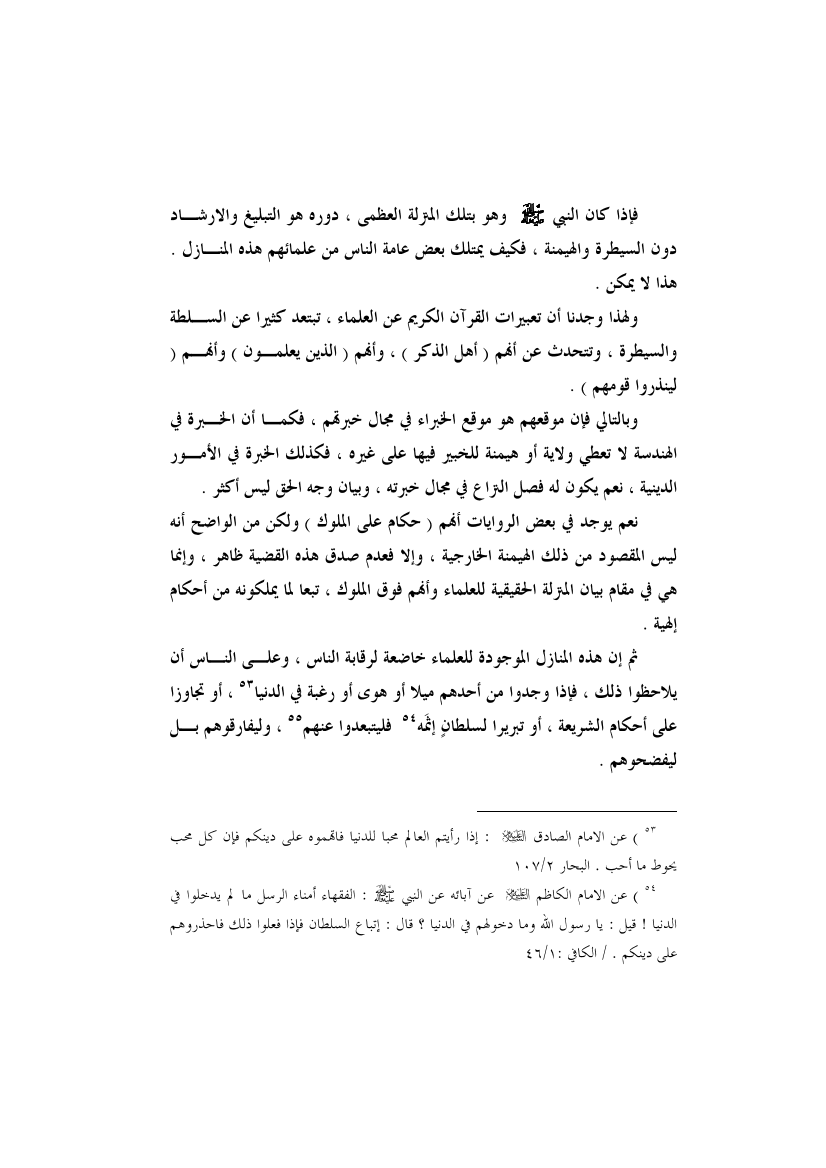 فإذا كان النبي ﷺ وهو بتلك المنزلة العظمى ، دوره هو التبليغ والارشـــاد
دون السيطرة والهيمنة ، فكيف يمتلك بعض عامة الناس من علمائهم هذه المنـــازل .
هذا لا يمكن .
ولهذا وجدنا أن تعبيرات القرآن الكريم عن العلماء ، تبتعد كثيرا عن الســـلطة
والسيطرة ، وتتحدث عن أنهم ( أهل الذكر ) ، وأنهم ( الذين يعلمـــون ) وأنهـــم (
لينذروا قومهم ) .
وبالتالي فإن موقعهم هو موقع الخبراء في مجال خبرتهم ، فكمـــا أن الخـــبرة في
الهندسة لا تعطي ولاية أو هيمنة للخبير فيها على غيره ، فكذلك الخبرة في الأمـــور
الدينية ، نعم يكون له فصل النزاع في مجال خبرته ، وبيان وجه الحق ليس أكثر .
نعم يوجد في بعض الروايات أنهم ( حكام على الملوك ) ولكن من الواضح أنه
ليس المقصود من ذلك الهيمنة الخارجية ، وإلا فعدم صدق هذه القضية ظاهر ، وإنما
هي في مقام بيان المنزلة الحقيقية للعلماء وأنهم فوق الملوك ، تبعا لما يملكونه من أحكام
إلهية .
ثم إن هذه المنازل الموجودة للعلماء خاضعة لرقابة الناس ، وعلـــى النـــاس أن
يلاحظوا ذلك ، فإذا وجدوا من أحدهم ميلا أو هوى أو رغبة في الدنيا٥٣ ، أو تجاوزا
على أحكام الشريعة ، أو تبريرا لسلطانٍ إثمَه٥٤ فليتبعدوا عنهم٥٥ ، وليفارقوهم بـــل
ليفضحوهم .
٥٣ ) عن الامام الصادق عليه السلام : إذا رأيتم العالم محبا للدنيا فاتهموه على دينكم فإن كل محب
يحوط ما أحب . البحار ١٠٧/٢
٥٤ ) عن الامام الكاظم عليه السلام عن آبائه عن النبي ﷺ : الفقهاء أمناء الرسل ما لم يدخلوا في
الدنيا ! قيل : يا رسول الله وما دخولهم في الدنيا ؟ قال : إتباع السلطان فإذا فعلوا ذلك فاحذروهم
على دينكم . / الكافي :٤٦/١